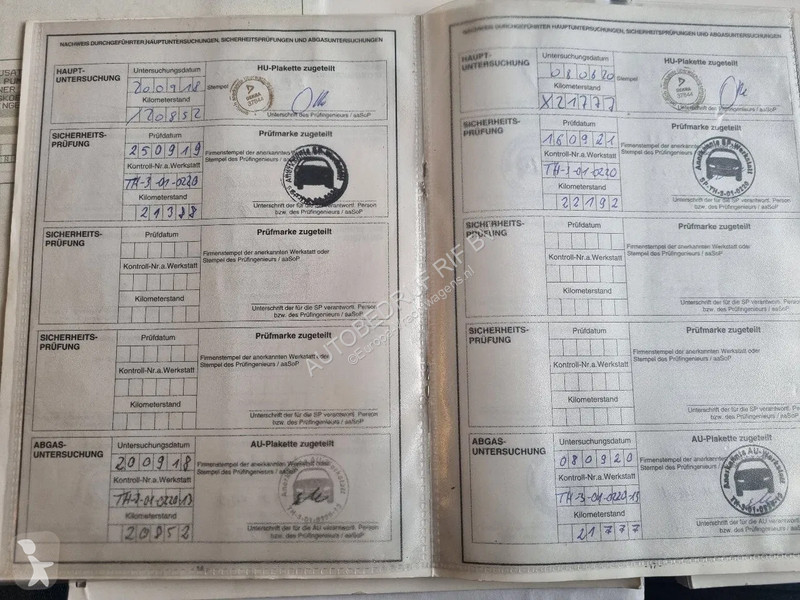 NACHWEIS DURCHGEFÜHRTER HAUPTUNTERSUCHUNGEN, SICHERHEITSPRÜFUNGEN UND ABGASUNTERSUCHUNGEN
HAUPT-
UNTERSUCHUNG
Untersuchungsdatum
200918
Kilometerstand
20852
Stempel
HU-Plakette zugeteilt
DEKRA
37844
Unterschrift des Prüfingenieurs / aaSoP
SICHERHEITS-
PRÜFUNG
Prüfdatum
250919
Kontroll-Nr.a.Werkstatt
TH-3-01-0220
Kilometerstand
21328
Prüfmarke zugeteilt
Firmenstempel der anerkannten Werkstatt oder
Stempel des Prüfingenieurs / aaSoP
Anerkannte SP-Werkstatt
Unterschrift der für die SP verantwortl. Person
bzw. des Prüfingenieurs / aaSoP
SICHERHEITS-
PRÜFUNG
Prüfdatum
Kontroll-Nr.a.Werkstatt
Kilometerstand
Prüfmarke zugeteilt
Firmenstempel der anerkannten Werkstatt oder
Stempel des Prüfingenieurs / aaSoP
Unterschrift der für die SP verantwortl. Person
bzw. des Prüfingenieurs / aaSoP
SICHERHEITS-
PRÜFUNG
Prüfdatum
Kontroll-Nr.a.Werkstatt
Kilometerstand
Prüfmarke zugeteilt
Firmenstempel der anerkannten Werkstatt oder
Stempel des Prüfingenieurs / aaSoP
Unterschrift der für die SP verantwortl. Person
bzw. des Prüfingenieurs / aaSoP
ABGAS-
UNTERSUCHUNG
Untersuchungsdatum
200918
Kontroll-Nr.a.Werkstatt
TH-3-01-0220-13
Kilometerstand
20852
AU-Plakette zugeteilt
Firmenstempel der anerkannten Werkstatt oder
Stempel des Prüfingenieurs / aaSoP
Anerkannte AU-Werkstatt
Unterschrift der für die AU verantwortl. Person
bzw. des Prüfingenieurs / aaSoP
- 16 -
NACHWEIS DURCHGEFÜHRTER HAUPTUNTERSUCHUNGEN, SICHERHEITSPRÜFUNGEN UND ABGASUNTERSUCHUNGEN
HAUPT-
UNTERSUCHUNG
Untersuchungsdatum
Kilometerstand
21777
Stempel
HU-Plakette zugeteilt
DEKRA
37844
Unterschrift des Prüfingenieurs / aaSoP
SICHERHEITS-
PRÜFUNG
Prüfdatum
160921
Kontroll-Nr.a.Werkstatt
TH-3-01-0220
Kilometerstand
22192
Prüfmarke zugeteilt
Firmenstempel der anerkannten Werkstatt oder
Stempel des Prüfingenieurs / aaSoP
Anerkannte SP-Werkstatt
SP-TH-3-01-0220
Unterschrift der für die SP verantwortl. Person
bzw. des Prüfingenieurs / aaSoP
SICHERHEITS-
PRÜFUNG
Prüfdatum
Kontroll-Nr.a.Werkstatt
Kilometerstand
Prüfmarke zugeteilt
Firmenstempel der anerkannten Werkstatt oder
Stempel des Prüfingenieurs / aaSoP
Unterschrift der für die SP verantwortl. Person
bzw. des Prüfingenieurs / aaSoP
SICHERHEITS-
PRÜFUNG
Prüfdatum
Kontroll-Nr.a.Werkstatt
Kilometerstand
Prüfmarke zugeteilt
Firmenstempel der anerkannten Werkstatt oder
Stempel des Prüfingenieurs / aaSoP
Unterschrift der für die SP verantwortl. Person
bzw. des Prüfingenieurs / aaSoP
ABGAS-
UNTERSUCHUNG
Untersuchungsdatum
080920
Kontroll-Nr.a.Werkstatt
TH-3-01-0220-13
Kilometerstand
21777
AU-Plakette zugeteilt
Firmenstempel der anerkannten Werkstatt oder
Stempel des Prüfingenieurs / aaSoP
Anerkannte AU-Werkstatt
Unterschrift der für die AU verantwortl. Person
bzw. des Prüfingenieurs / aaSoP
- 17 -
AUTOBEDRIJF RIF BV